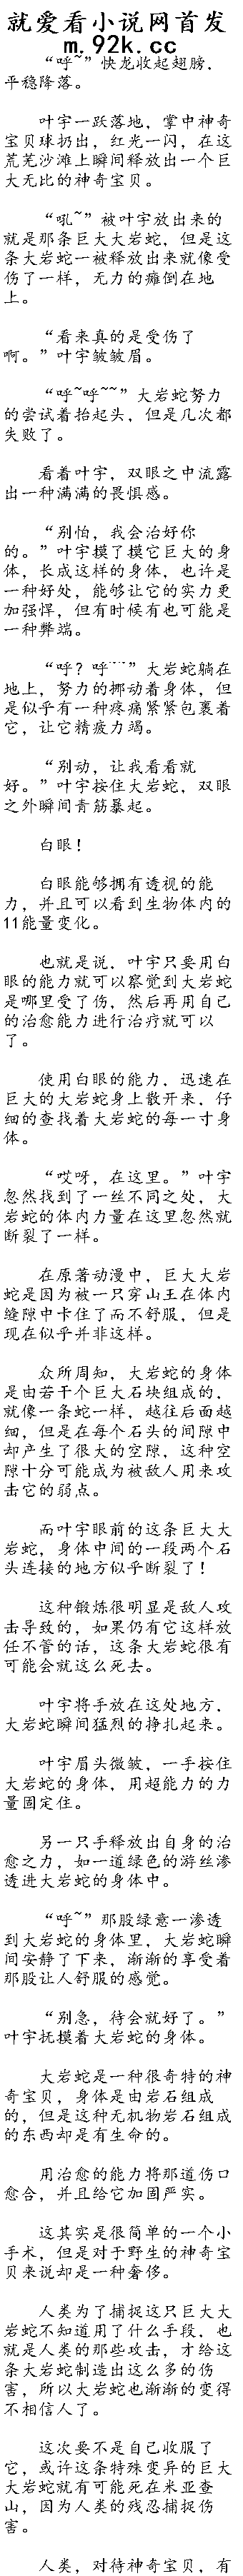 就爱看小说网首发
m.92k.cc
“呼~”快龙收起翅膀，
平稳降落。
叶宇一跃落地，掌中神奇
宝贝球扔出，红光一闪，在这
荒芜沙滩上瞬间释放出一个巨
大无比的神奇宝贝。
“吼~”被叶宇放出来的
就是那条巨大大岩蛇，但是这
条大岩蛇一被释放出来就像受
伤了一样，无力的瘫倒在地
上。
“看来真的是受伤了
啊。”叶宇皱皱眉。
“呼~呼~~”大岩蛇努力
的尝试着抬起头，但是几次都
失败了。
看着叶宇，双眼之中流露
出一种满满的畏惧感。
“别怕，我会治好你
的。”叶宇摸了摸它巨大的身
体，长成这样的身体，也许是
一种好处，能够让它的实力更
加强悍，但有时候有也可能是
一种弊端。
“呼？呼~~~”大岩蛇躺在
地上，努力的挪动着身体，但
是似乎有一种疼痛紧紧包裹着
它，让它精疲力竭。
“别动，让我看看就
好。”叶宇按住大岩蛇，双眼
之外瞬间青筋暴起。
白眼！
白眼能够拥有透视的能
力，并且可以看到生物体内的
11能量变化。
也就是说，叶宇只要用白
眼的能力就可以察觉到大岩蛇
是哪里受了伤，然后再用自己
的治愈能力进行治疗就可以
了。
使用白眼的能力，迅速在
巨大的大岩蛇身上散开来，仔
细的查找着大岩蛇的每一寸身
体。
“哎呀，在这里。”叶宇
忽然找到了一丝不同之处，大
岩蛇的体内力量在这里忽然就
断裂了一样。
在原著动漫中，巨大大岩
蛇是因为被一只穿山王在体内
缝隙中卡住了而不舒服，但是
现在似乎并非这样。
众所周知，大岩蛇的身体
是由若干个巨大石块组成的，
就像一条蛇一样，越往后面越
细，但是在每个石头的间隙中
却产生了很大的空隙，这种空
隙十分可能成为被敌人用来攻
击它的弱点。
而叶宇眼前的这条巨大大
岩蛇，身体中间的一段两个石
头连接的地方似乎断裂了！
这种锻炼很明显是敌人攻
击导致的，如果仍有它这样放
任不管的话，这条大岩蛇很有
可能会就这么死去。
叶宇将手放在这处地方，
大岩蛇瞬间猛烈的挣扎起来。
叶宇眉头微皱，一手按住
大岩蛇的身体，用超能力的力
量固定住。
另一只手释放出自身的治
愈之力，如一道绿色的游丝渗
透进大岩蛇的身体中。
“呼~”那股绿意一渗透
到大岩蛇的身体里，大岩蛇瞬
间安静了下来，渐渐的享受着
那股让人舒服的感觉。
“别急，待会就好了。”
叶宇抚摸着大岩蛇的身体。
大岩蛇是一种很奇特的神
奇宝贝，身体是由岩石组成
的，但是这种无机物岩石组成
的东西却是有生命的。
用治愈的能力将那道伤口
愈合，并且给它加固严实。
这其实是很简单的一个小
手术，但是对于野生的神奇宝
贝来说却是一种奢侈。
人类为了捕捉这只巨大大
岩蛇不知道用了什么手段，也
就是人类的那些攻击，才给这
条大岩蛇制造出这么多的伤
害，所以大岩蛇也渐渐的变得
不相信人了。
这次要不是自己收服了
它，或许这条特殊变异的巨大
大岩蛇就有可能死在米亚查
山，因为人类的残忍捕捉伤
害。
人类，对待神奇宝贝，有